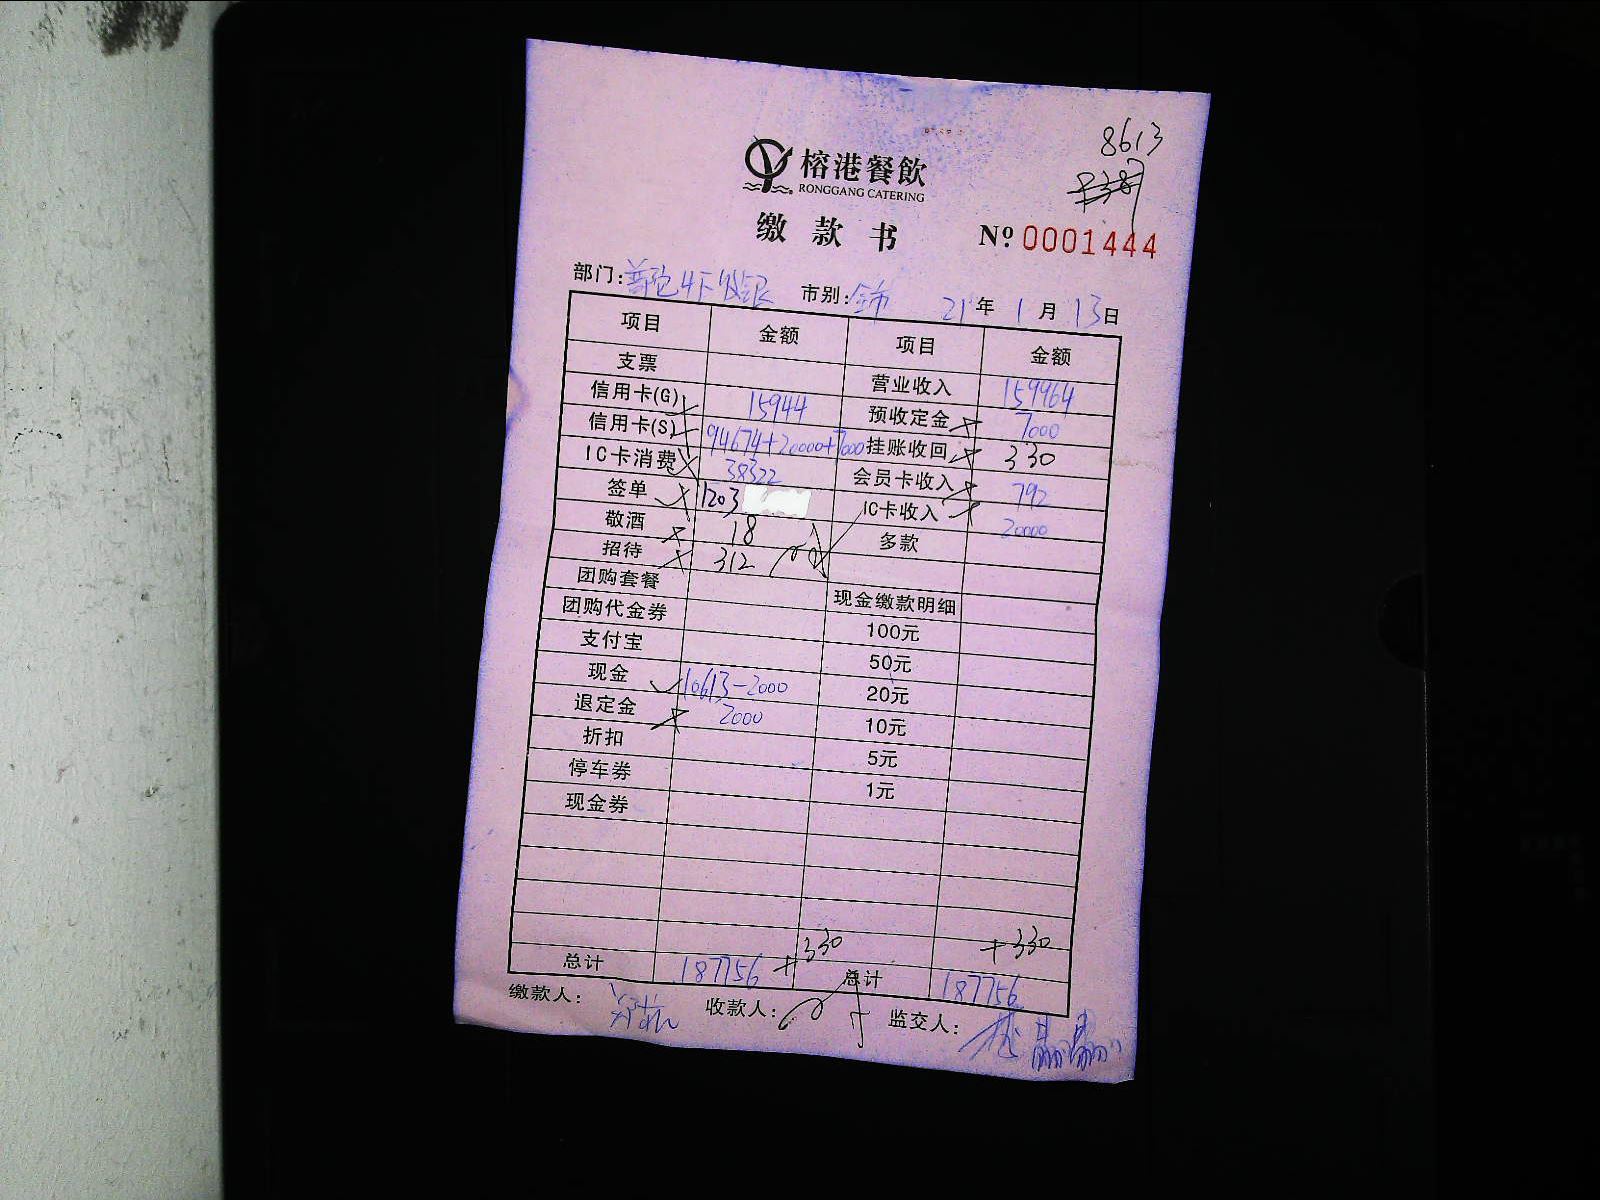 8613
榕港餐飲
RONGGANG CATERING
缴 款 书 Nº 0001444
部门: 收银 市别: 全市 21 年 1 月 13 日
项目 金额 项目 金额
支票 营业收入 159964
信用卡(G) 15944 预收定金 7000
信用卡(S) 94674+20000+7000 挂账收回 330
IC卡消费 38322 会员卡收入 792
签单 1203 IC卡收入 20000
敬酒 18 多款
招待 312
团购套餐 现金缴款明细
团购代金券 100元
支付宝 50元
现金 10613-2000 20元
退定金 2000 10元
折扣 5元
停车券 1元
现金券
+330 +330
总计 187756 总计 187756
缴款人: 收款人: 监交人: